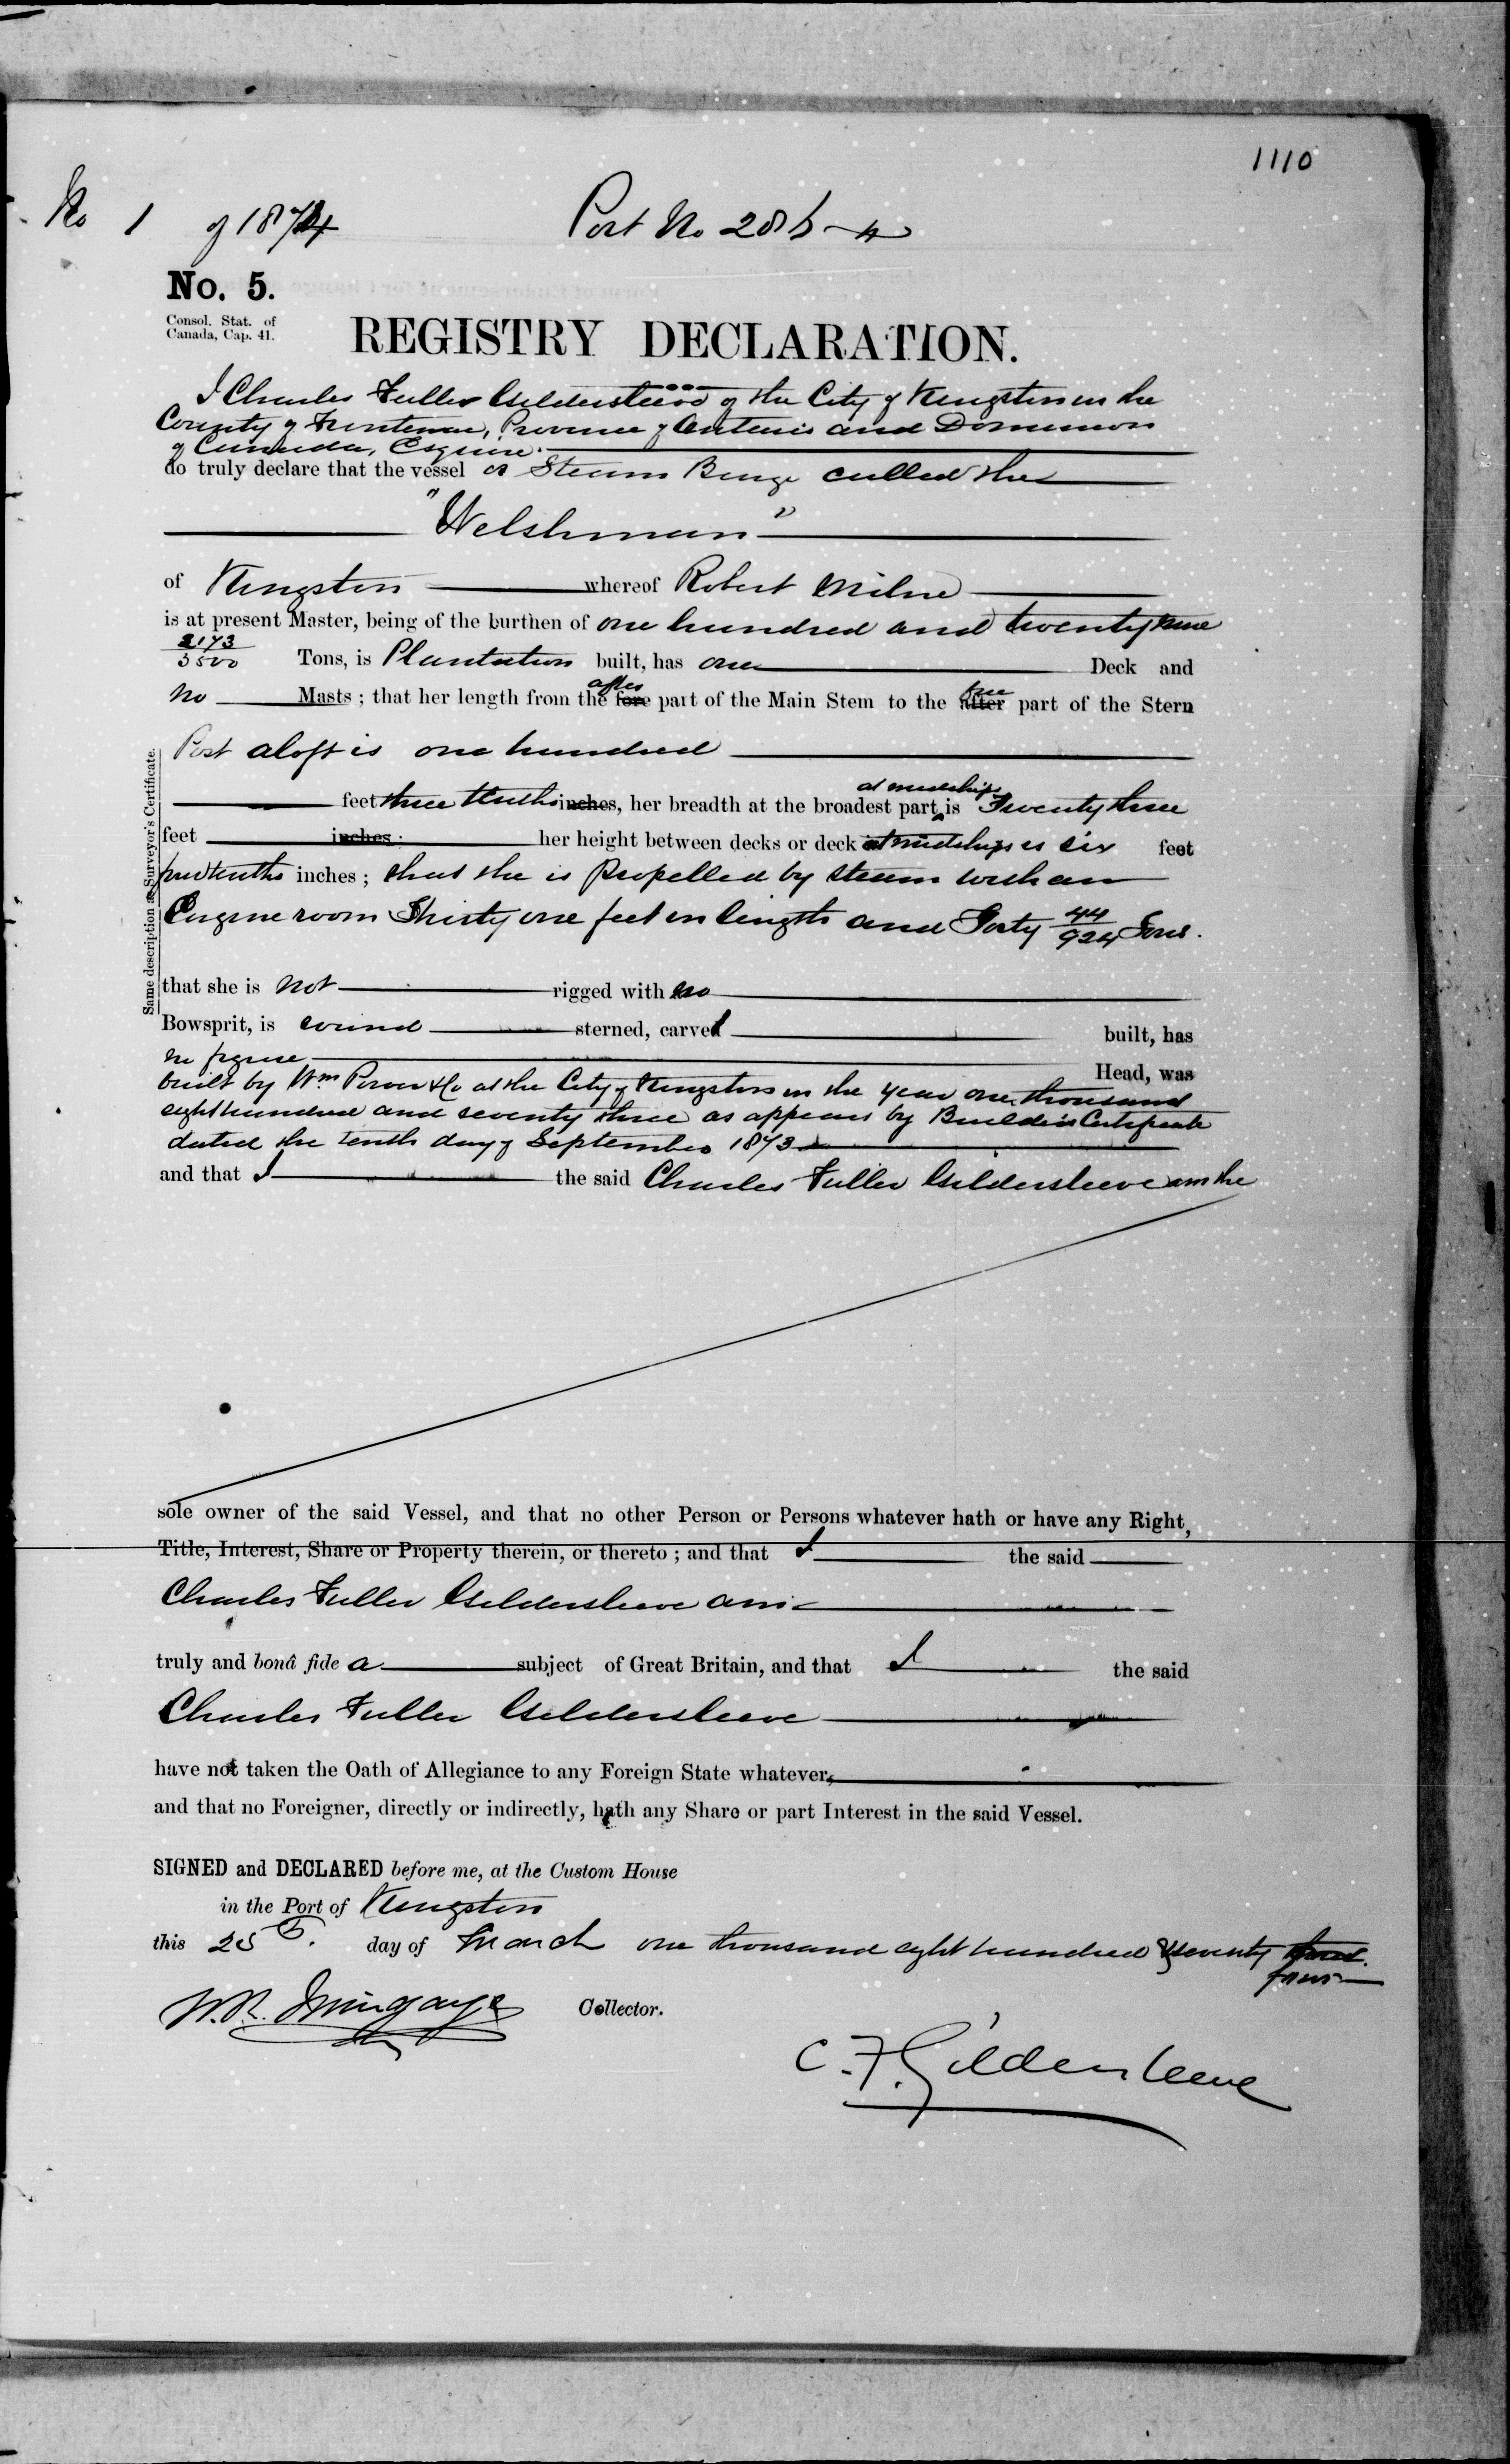 1110
No 1 of 1874
Port No 286
No. 5.
Consol. Stat. of
Canada, Cap. 41.
REGISTRY DECLARATION.
I Charles Fuller Gildersleeve of the City of Kingston in the
County of Frontenac, Province of Ontario and Dominion
of Canada, Esquire.
do truly declare that the vessel or Steam Barge called the
"Welshman"
of Kingston whereof Robert Milne
is at present Master, being of the burthen of one hundred and twenty nine
2173/3500 Tons, is Plantation built, has one Deck and
no Masts ; that her length from the after fore part of the Main Stem to the fore after part of the Stern
Post aloft is one hundred
feet three tenths inches, her breadth at the broadest part at midships is Twenty three
feet inches ; her height between decks or deck at midships is six feet
tenths inches ; that she is Propelled by steam with an
Engine room Thirty one feet in length and Forty 44/924 Tons.
that she is not rigged with no
Bowsprit, is round sterned, carvel built, has
no figure Head, was
built by Wm Power & Co at the City of Kingston in the year one thousand
eight hundred and seventy three as appears by Builders Certificate
dated the tenth day of September 1873
and that I the said Charles Fuller Gildersleeve am the
Same description as Surveyor's Certificate.
sole owner of the said Vessel, and that no other Person or Persons whatever hath or have any Right,
Title, Interest, Share or Property therein, or thereto ; and that I the said
Charles Fuller Gildersleeve am
truly and bonâ fide a subject of Great Britain, and that I the said
Charles Fuller Gildersleeve
have not taken the Oath of Allegiance to any Foreign State whatever,
and that no Foreigner, directly or indirectly, hath any Share or part Interest in the said Vessel.
SIGNED and DECLARED before me, at the Custom House
in the Port of Kingston
this 25th. day of March one thousand eight hundred & seventy
four
W.R. Mingaye Collector.
C. F. Gildersleeve